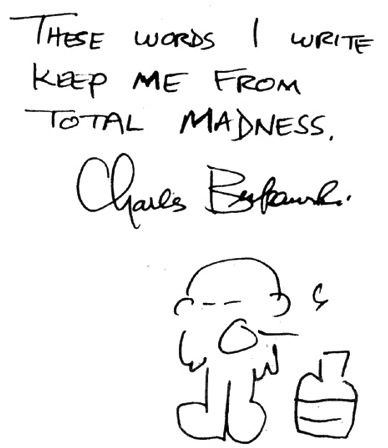 THESE WORDS I WRITE
KEEP ME FROM
TOTAL MADNESS.
Charles Bukowski.